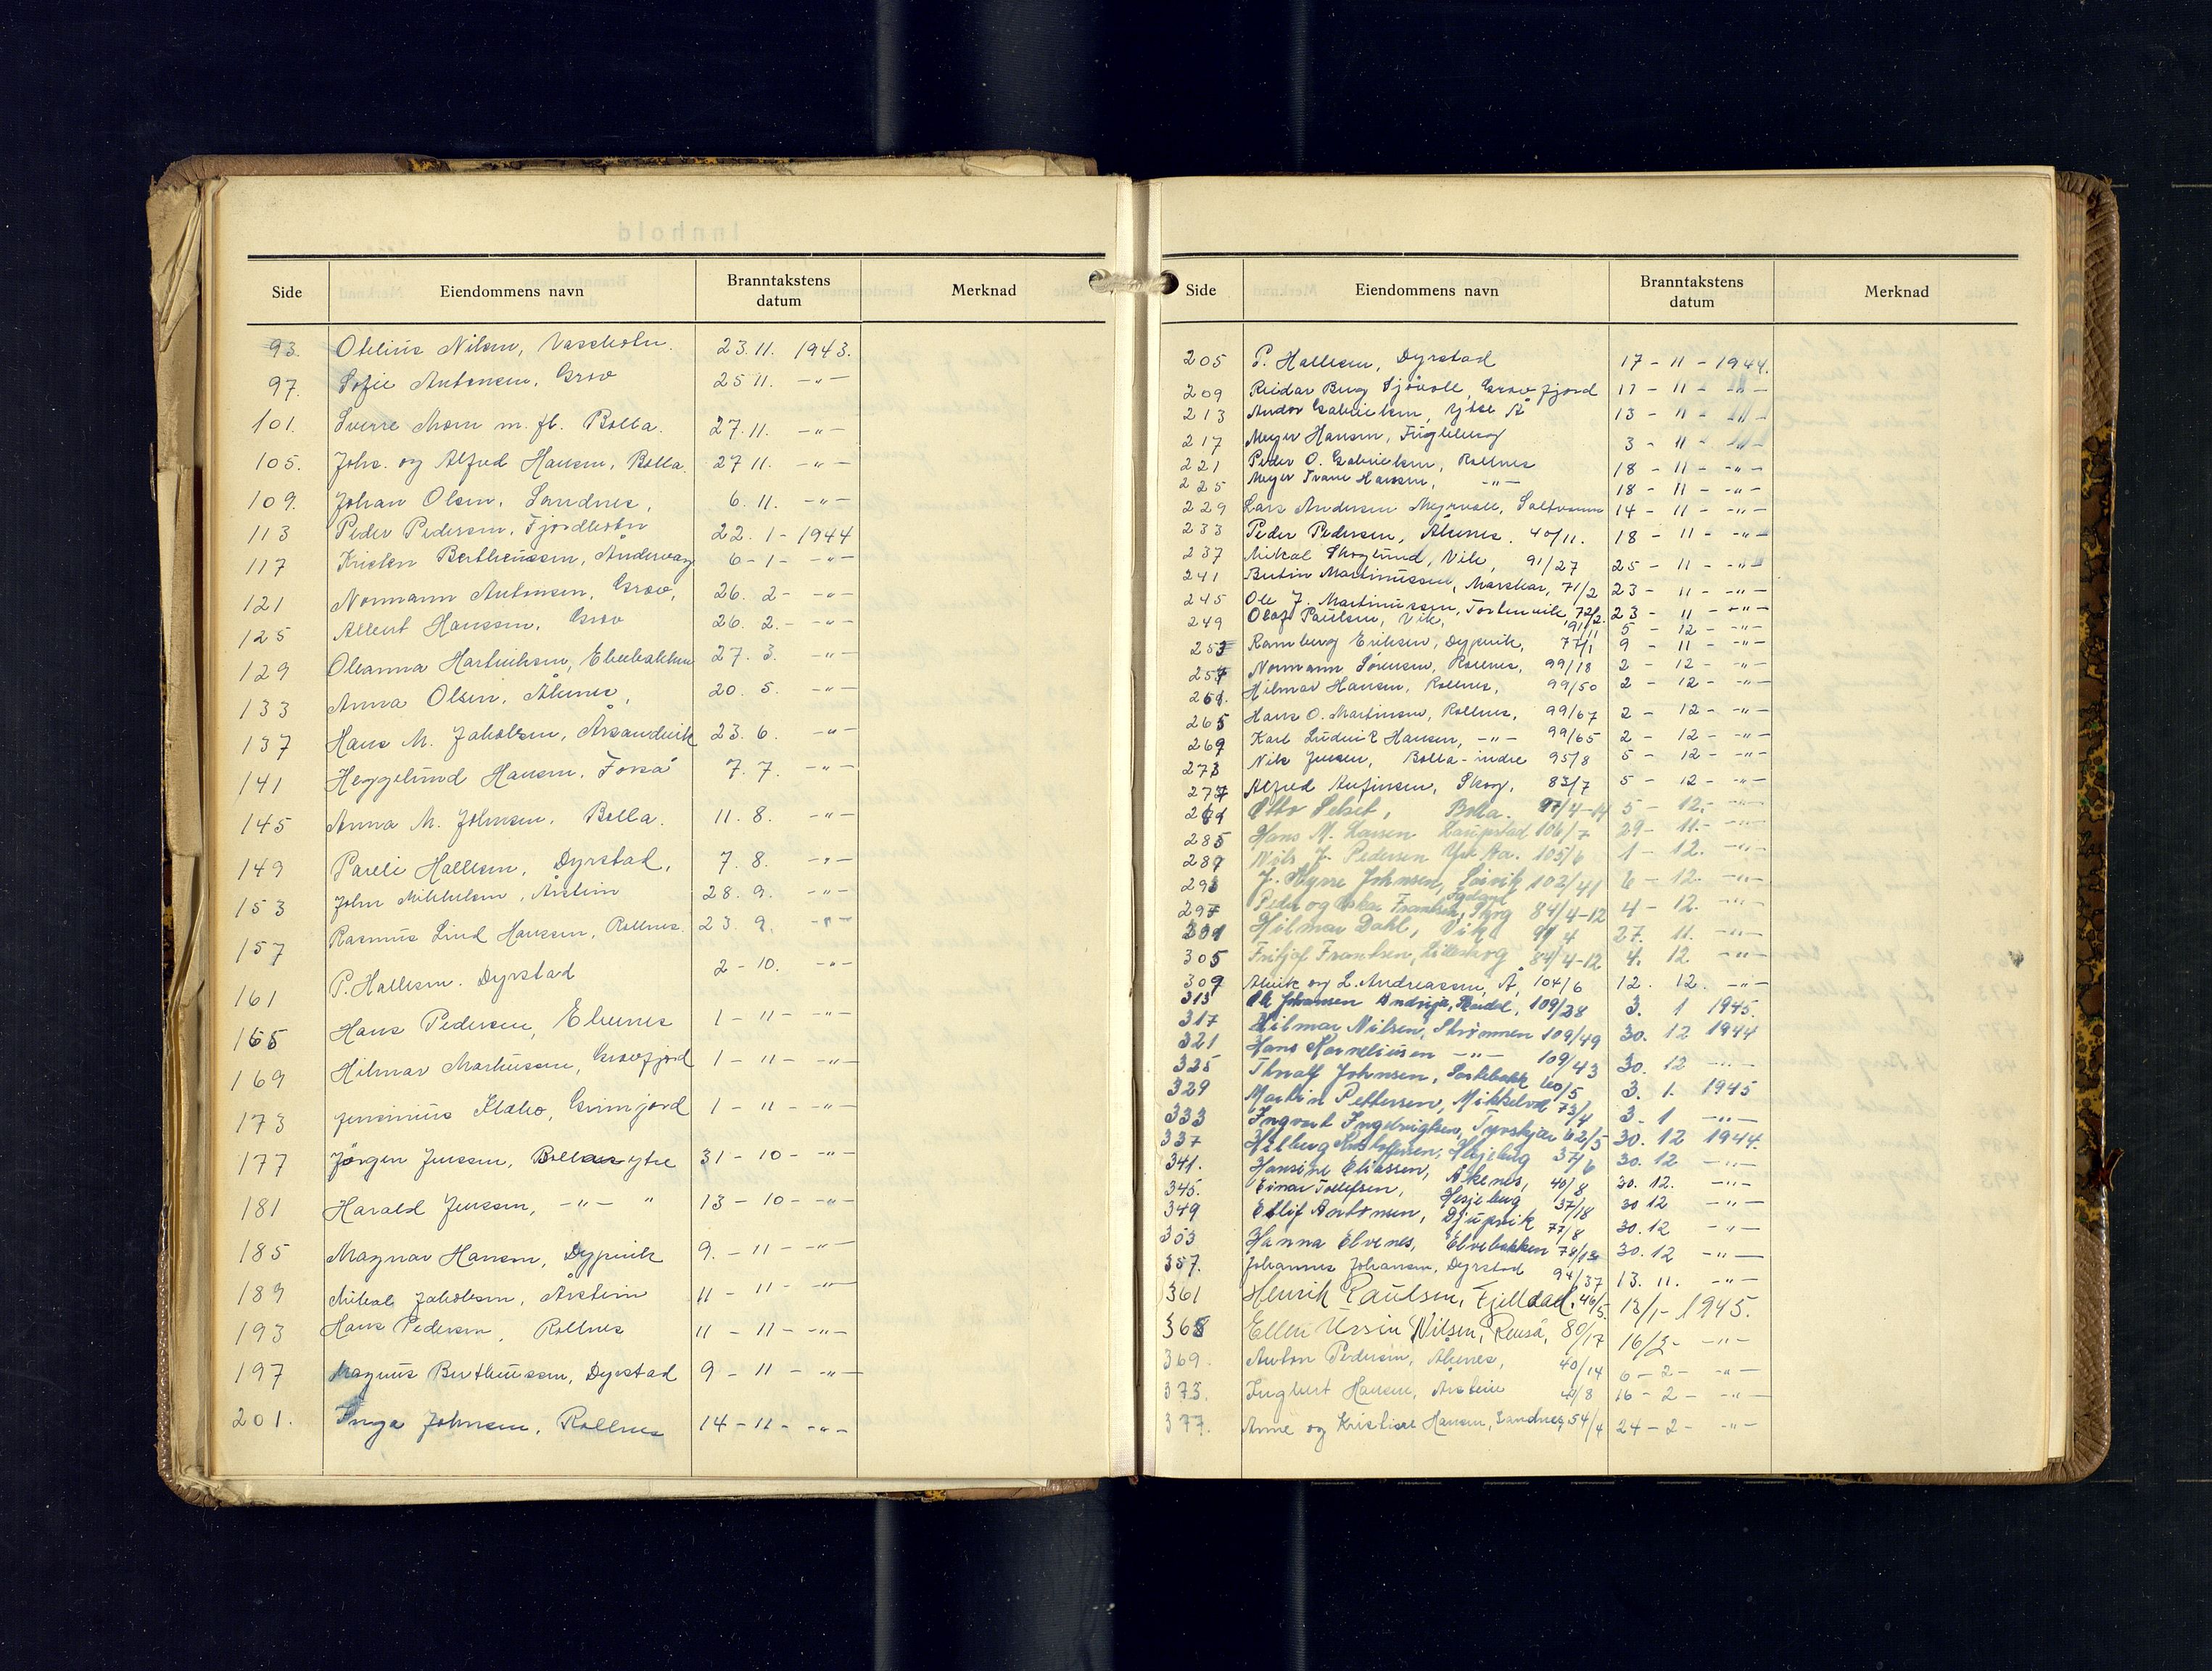 Side Eiendommens navn Branntakstens datum Merknad
93. Otelius Nilsen, 23.11. 1943.
97. Sofie Antonsen, Grov 25 11. -"-
101. Sverre Moen m. fl. Bolla. 27.11. -"-
105. Johs. og Alfred Hansen, Bolla. 27 11. -"-
109. Johan Olsen, Sandnes, 6. 11. -"-
113 Peder Pedersen, Fjordbotn 22. 1 - 1944
117 Kristen Bertheussen, Åndervåg 6 - 1 - -"-
121 Normann Antonsen, Grov, 26. 2 - -"-
125 Albert Hanssen, Grov 26. 2. - -"-
129 Oleanna Hartviksen, Elvebakken 27. 3. -"-
133 Anna Olsen, Åkenes, 20. 5. -"-
137 Hans M. Jakobsen, Årsandvik 23. 6. -"-
141 Heggelund Hansen, Forså 7. 7. -"-
145 Anna M. Johnsen, Bolla. 11. 8. -"-
149 Pareli Hallesen, Dyrstad, 7. 8. -"-
153 John Mikkelsen, Årstein 28. 9. -"-
157 Rasmus Lind Hanssen, Rollnes. 23. 9. -"-
161 P. Hallesen. Dyrstad 2 - 10. -"-
165 Hans Pedersen, Elvenes 1 - 11 - -"-
169 Hilmar Markussen, Grovfjord 1 - 11 - -"-
173 Jensinius Klæbo, Grimjord 1 - 11 - -"-
177 Jörgen Jenssen, Bolla ytre 31 - 10 - -"-
181 Harald Jenssen, -"- " 13 - 10 - -"-
185 Magnar Hansen, Dypvik 9. - 11 - -"-
189 Mikal Jakobsen, Årstein 11 - 11 - -"-
193 Hans Pedersen, Rollnes 11 - 11 - -"-
197 Magnus Bertheussen, Dyrstad 9 - 11 - -"-
201. Inga Johnsen, Rollnes 14 - 11 - -"-
Side Eiendommens navn Branntakstens datum Merknad
205 P. Hallesen, Dyrstad 17 - 11 - 1944.
209 Reidar Berg Sjövoll, Grovfjord 11 - 11 - -"-
213 Andor Gabrielsen, Ytre Å 13 - 11 -
217 Meyer Hansen, Fugleberg 3 - 11 -
221 Peder O. Gabrielsen, Rollnes 18 - 11 - -"-
225 Meyer Hansen, -"- 18 - 11 - -"-
229 Lars Andersen Myrvoll, Saltvann 14 - 11 - -"-
233 Peder Pedersen, Åkenes. 40/11. 18 - 11 - -"-
237 Mikal Skoglund, Vik, 91/27 25 - 11 - -"-
241 Martinussen, 71/2 23 - 11 - -"-
245 Ole J. Martinussen, 72/2. 23 - 11 - -"-
249 Olaf Paulsen, Vik, 91/11 5 - 12 - -"-
253 Ramberg Eriksen, Dypvik, 77/1 9 - 11 - -"-
257 Normann Sörensen, Rollnes, 99/18 2 - 12 - -"-
261. Hilmar Hansen, Rollnes, 99/50 2 - 12 - -"-
265 Hans O. Martinsen, Rollnes, 99/67 2 - 12 - -"-
269 Karl Ludvik Hansen, -"- 99/65 2 - 12 - -"-
273 Nils Jensen, Bolla-indre 95/8 5 - 12 - -"-
277 Alfred Anfinsen, Skog, 83/7 5 - 12 - -"-
281 Otto Selset, Bolla. 97/4-14 5 - 12. - -"-
285 Hans M. Larsen Laupstad 106/7 29 - 11. - -"-
289 Nils J. Pedersen Ytre Aa. 105/6 1 - 12. -"-
293 J. Skyrre Johnsen, 102/41 6 - 12. -"-
297 Peder og Frantsen, Skog 84/4-12 4 - 12. -"-
301 Hilmar Dahl, Vik 91 4 27. 11. -"-
305 Fritjof Frantsen, Lilleskog 84/4-12 4. 12. -"-
309 Alvik og L. Andreassen, Å, 104/6 12. 12. -"-
313 Johansen Andreja, 109/28 3. 1 1945.
317 Hilmar Nilsen, Strømmen 109/49 30. 12 1944
321 Hans Kornelinsen -"- 109/43 30. 12 -"-
325 Thralf Johnsen, 60/5 3. 1. 1945
329 Martin Pettersen, 73/4 3. 1 -"-
333 Ingvart Ingebrigtsen, 62/5 30. 12 1944.
337 Hilberg Kristoffersen, Hesjeberg 37/6 30. 12 -"-
341. Hansine Eliassen, Åkenes, 40/8 30. 12. -"-
345. Einar Tollefsen, Hesjeberg 37/18 30 12 -"-
349 Eilif Antonsen, Djupvik 77/8 30. 12 -"-
353 Hanna Elvenes, Elvebakken 78/13 30. 12 -"-
357. Johannes Johansen, Dyrstad 94/37 13. 11. -"-
361 Henrik Paulsen, Fjelldal, 46/5. 13/1- 1945.
365 Ellen Ursin Nilsen, Renså, 80/17 16/2- -"-
369. Anton Pedersen, Åkenes, 40/14 6 - 2 - -"-
373. Ingbert Hansen, Årstein 41/8 16 - 2 - -"-
377. Arne og Kristine Hansen, Sandnes, 54/4 24 - 2 - -"-